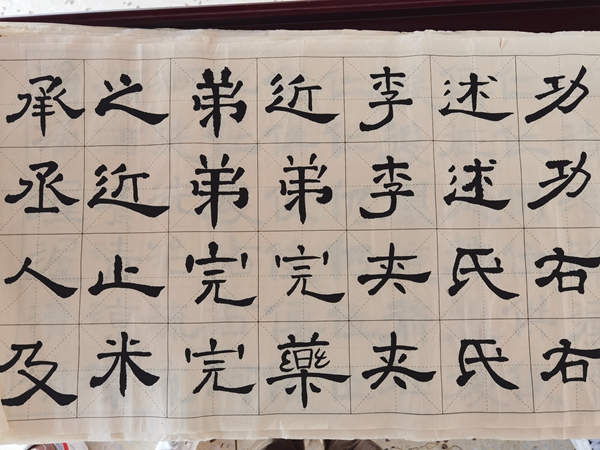 功功右右
述述氏氏
李李夹夹
近弟完藥
弟弟完完
之近止米
承丞人及